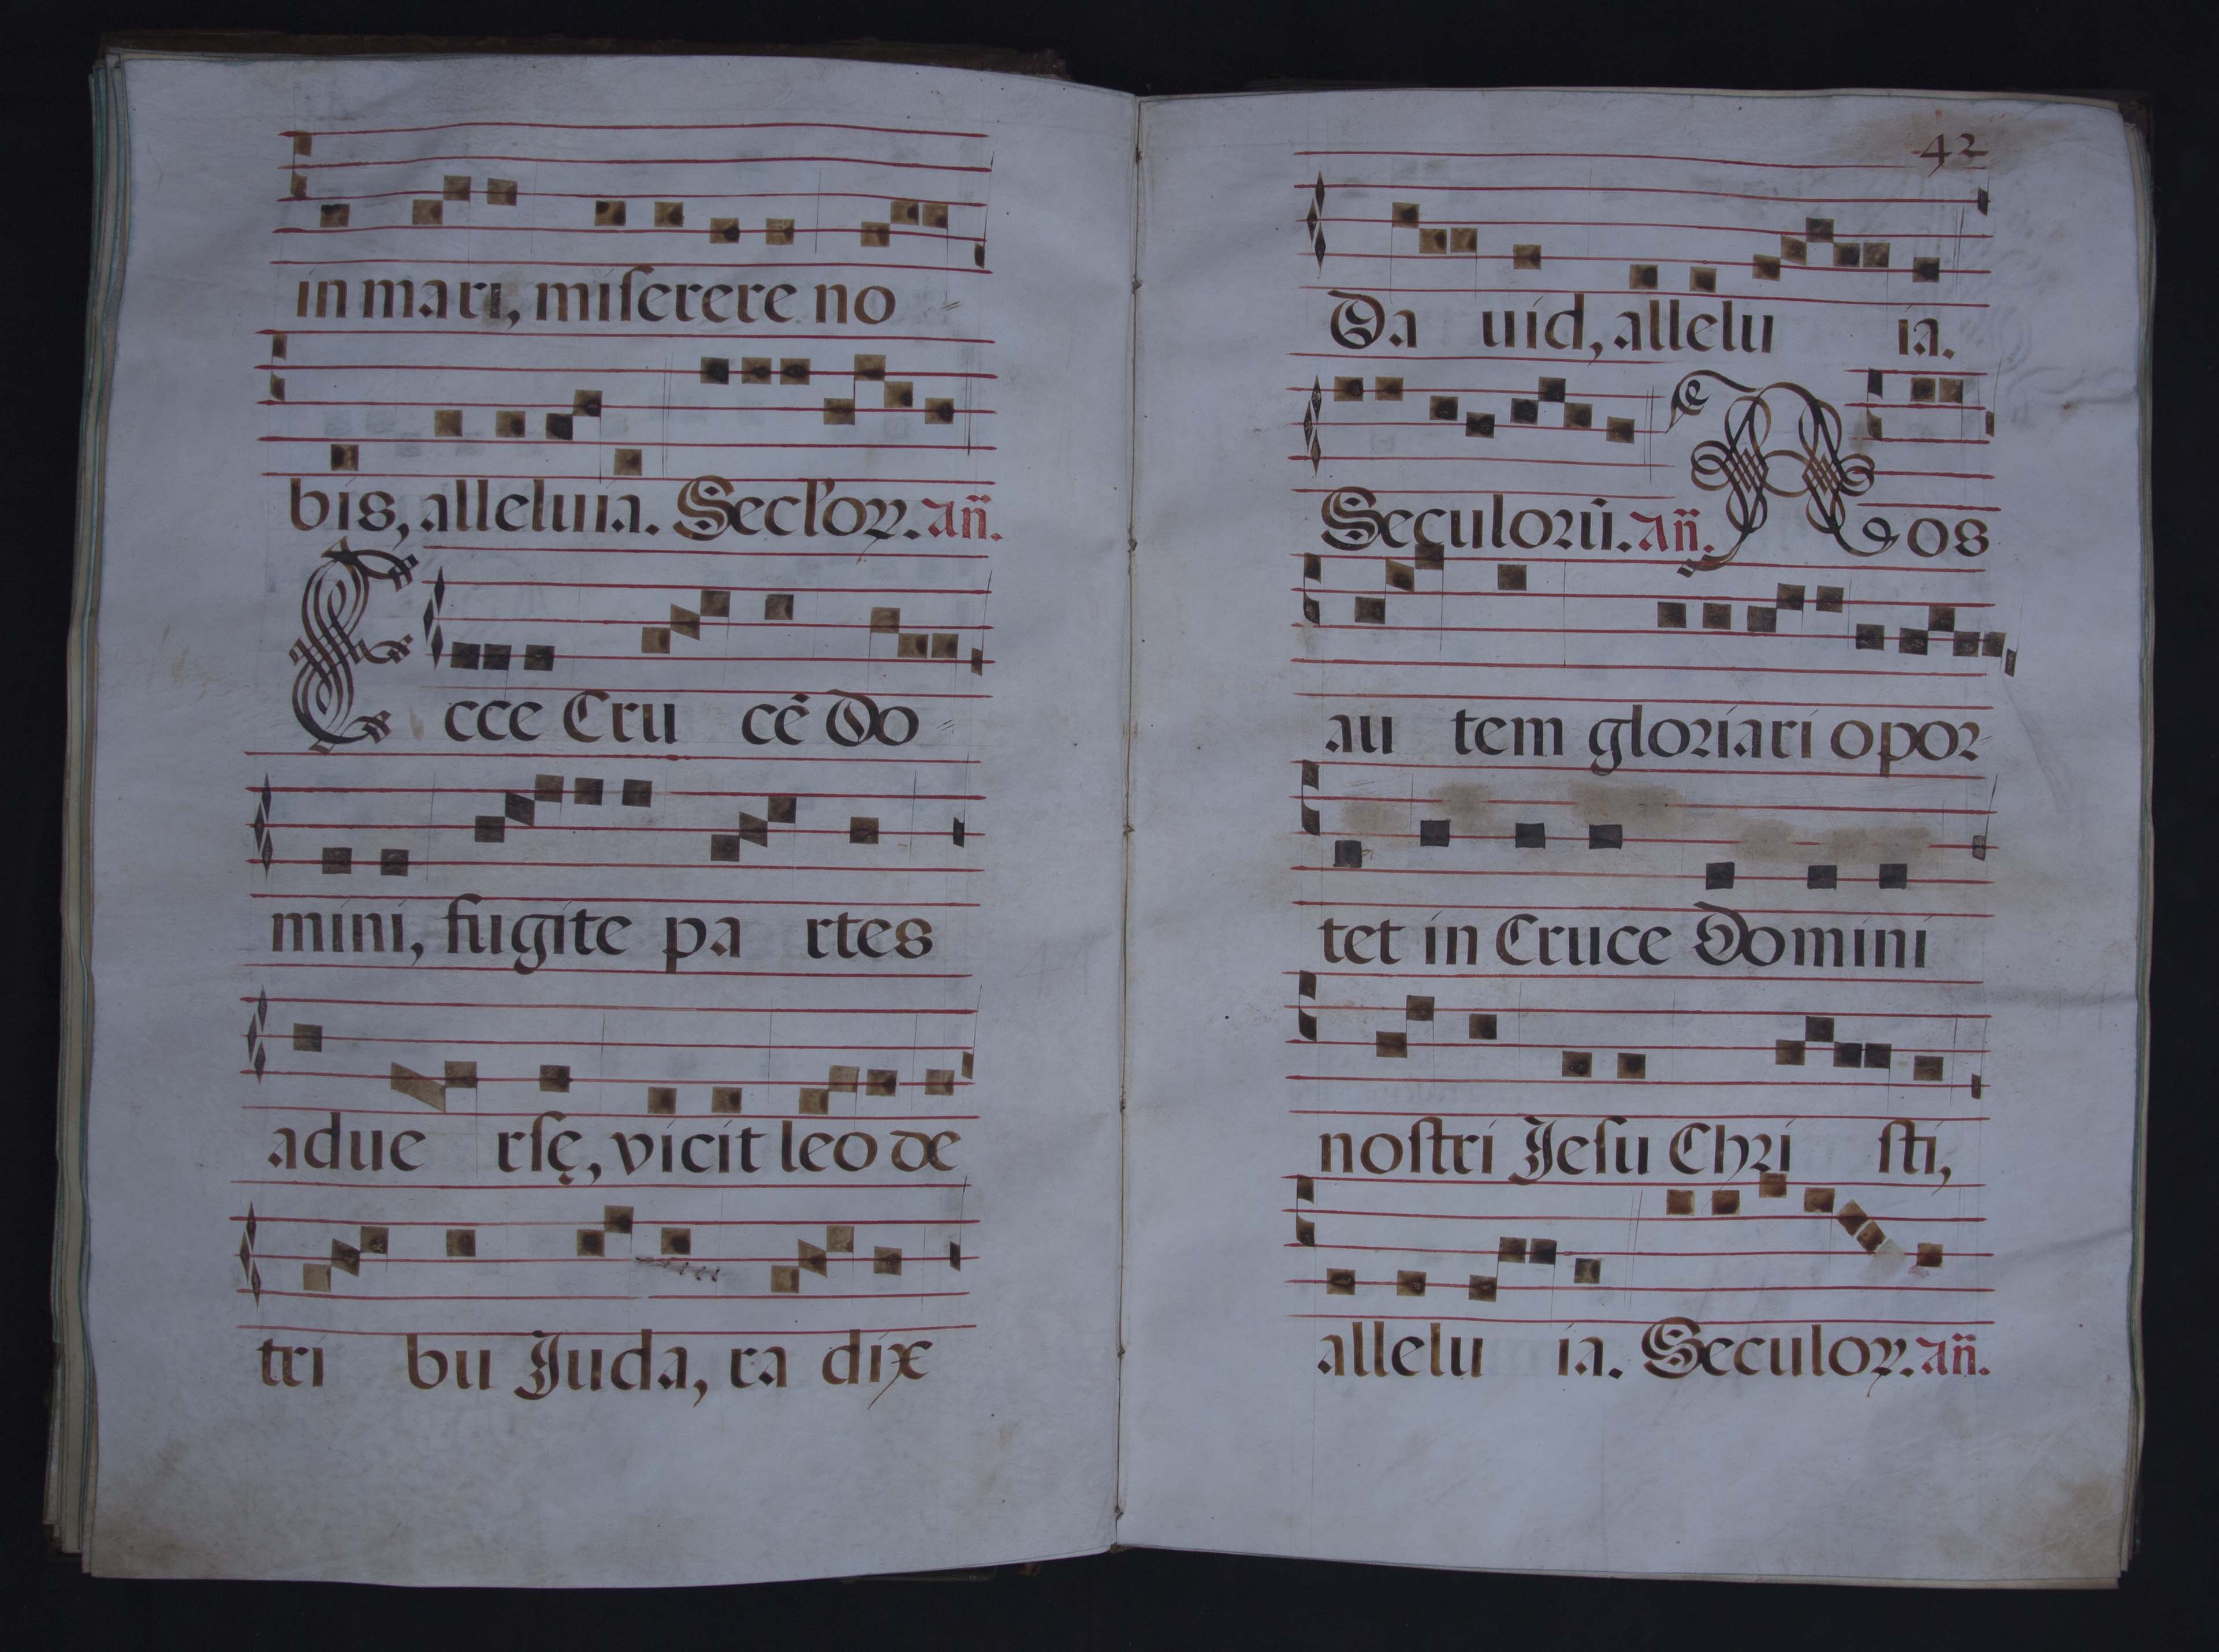 in mari, miſerere no=
bis, alleluia. Secl'oꝝ. an̄.
Ecce Cru cē Do=
mini, fugite pa rtes
adue rſę, vicit leo de
tri bu Juda, ra dix
42
Da uid, allelu ia.
Seculorū. an̄. Nos
au tem gloriari opor-
tet in Cruce Domini
noſtri Jeſu Chri ſti,
allelu ia. Seculoꝝ. an̄.